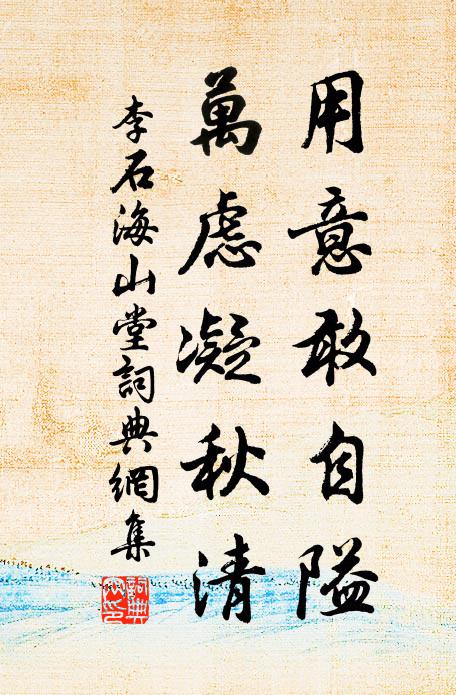 用意敢自隘
萬慮凝秋清
李石海山堂詞典網集